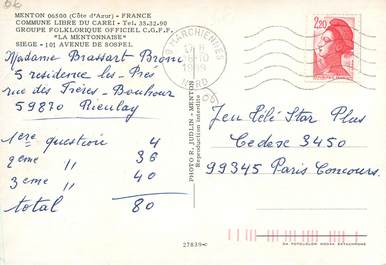 MENTON 06500 (Côte d'Azur) - FRANCE
COMMUNE LIBRE DU CAREI - Tel. 35.32.90
GROUPE FOLKLORIQUE OFFICIEL C.G.F.F.
"LA MENTONNAISE"
SIEGE - 101 AVENUE DE SOSPEL
Madame Brassart Bruno
5 residence les Prés
rue des Frères - Bouhour
59870 Rieulay
1ère question 4
2ème // 36
3ème // 40
total 80
PHOTO R. JUDLIN - MENTON
Reproduction interdite
27839-c
MARCHIENNES
1989
NORD
2,20
Jeu Télé Star Plus
Cedexe 3450
99345 Paris Concours.